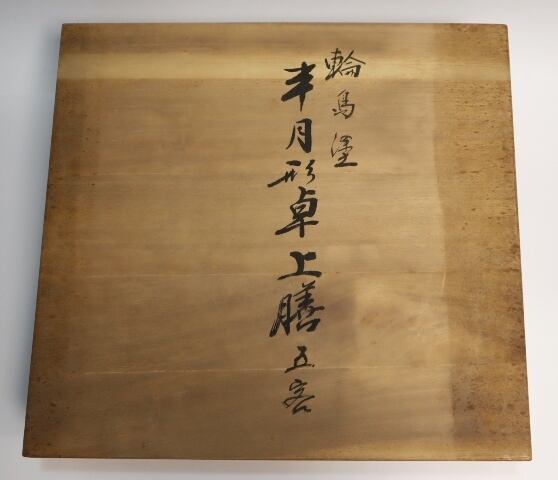 輪島塗
半月形卓上膳五客